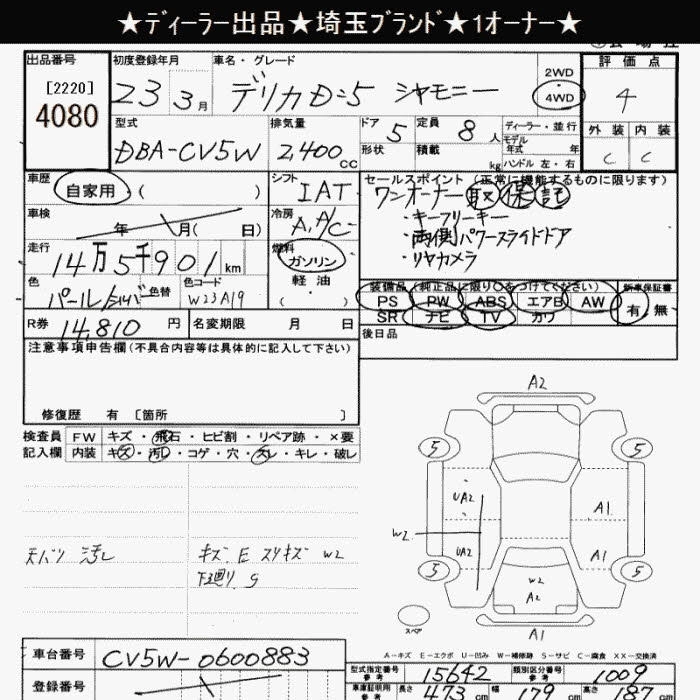 ★ディーラー出品★埼玉ブランド★1オーナー★
出品番号
[2220]
4080
初度登録年月
23 3月
車名・グレード
デリカD:5 シャモニー
2WD
4WD
評価点
4
外装 内装
C C
型式
DBA-CV5W
排気量
2,400cc
ドア 5
形状
定員 8人
積載 kg
ディーラー・並行
モデル年式 年
ハンドル 左・右
車歴
自家用 ( )
シフト
IAT
車検
年 月( 日)
冷房
A/C
走行
14万5千901km
燃料
ガソリン
軽油
( )
色
パール/シルバ
色替
色コード
W23A19
R券 14,810円
名変期限 月 日
セールスポイント (正常に機能するものに限ります)
ワンオーナー 取 保 記
・キーフリーキー
・両側パワースライドドア
・リヤカメラ
装備品 (純正品に限り○をつけてください)
PS PW ABS エアB AW
SR ナビ TV カワ
新車保証書
有・無
後日品
注意事項申告欄(不具合内容等は具体的に記入して下さい)
修復歴 有 [箇所 ]
検査員記入欄
FW キズ・飛石・ヒビ割・リペア跡・×要
内装 キズ・汚レ・コゲ・穴・スレ・キレ・破レ
天バリ 汚レ
キズ、E スリキズ W2
下廻り S
A2
5 5
UA2
A1
W2
UA2
A1
5 5
W2
A2
スペア
A1
A-キズ E-エクボ U-凹み W-補修跡 S-サビ C-腐食 XX-交換済
車台番号 CV5W-0600883
登録番号
型式指定番号 参考 15642
類別区分番号 参考 1009
車庫証明用 参考 長さ 473cm 幅 179cm 高さ 187cm